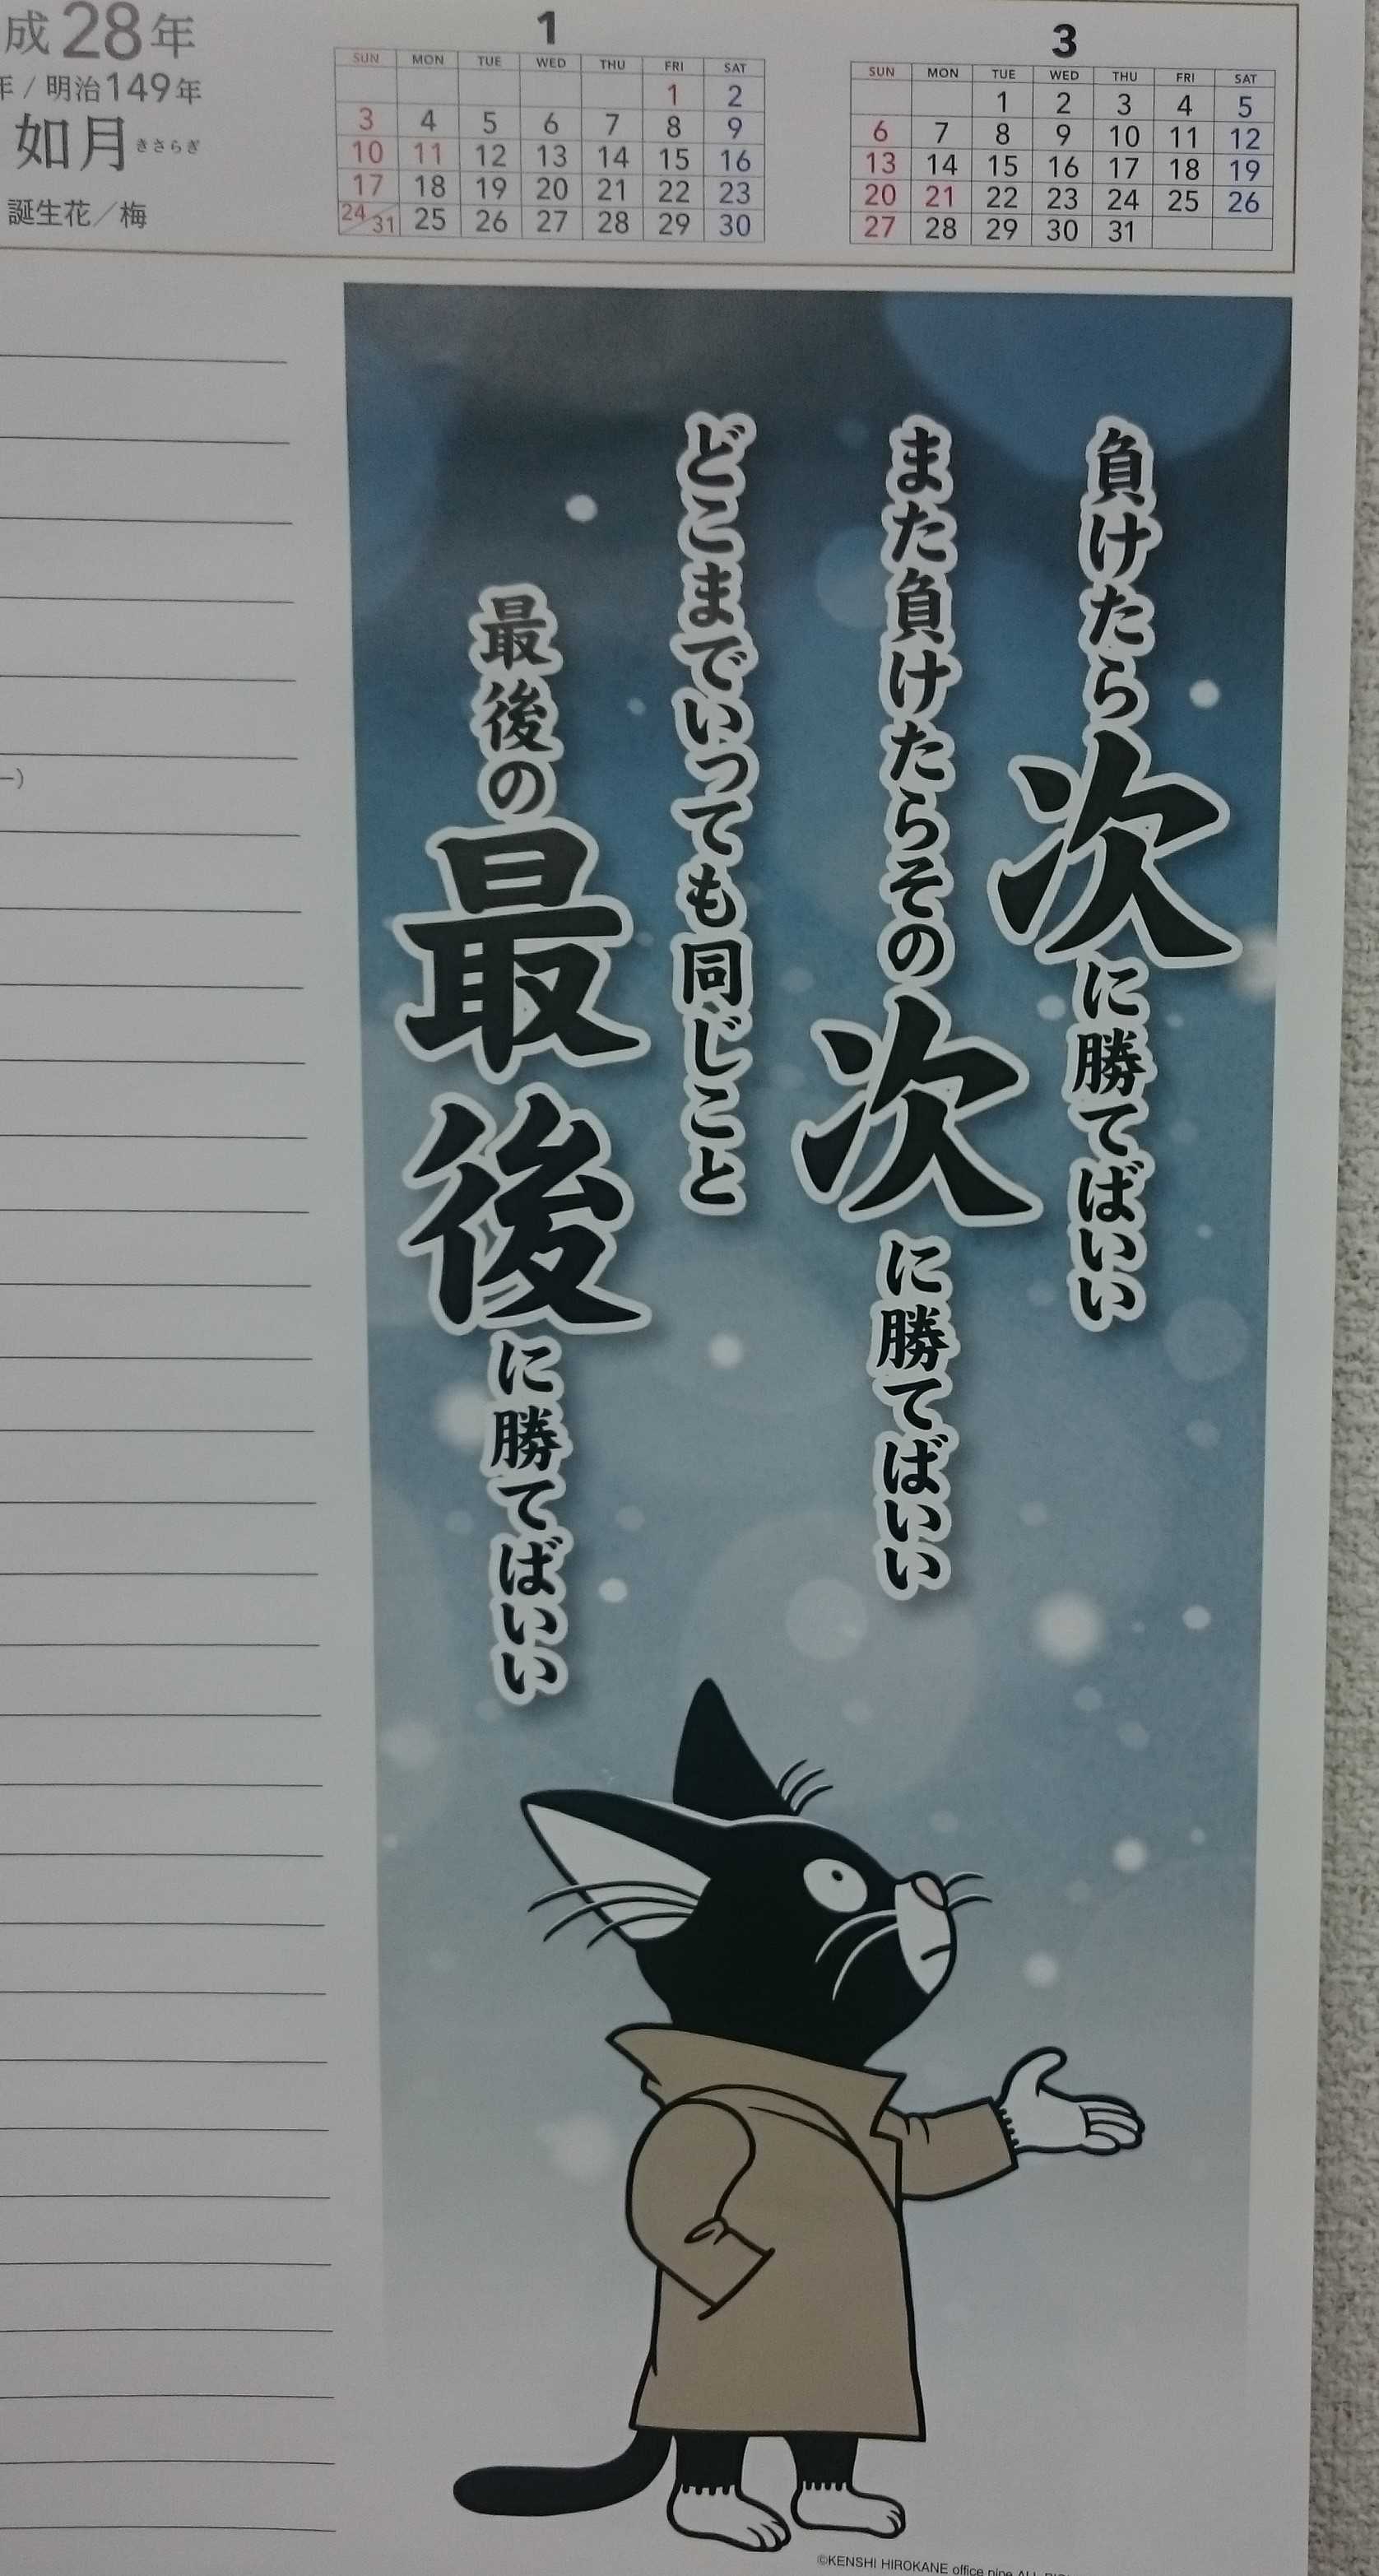 成28年
年/明治149年
如月 きさらぎ
誕生花/梅
1
SUN MON TUE WED THU FRI SAT
1 2
3 4 5 6 7 8 9
10 11 12 13 14 15 16
17 18 19 20 21 22 23
24/31 25 26 27 28 29 30
3
SUN MON TUE WED THU FRI SAT
1 2 3 4 5
6 7 8 9 10 11 12
13 14 15 16 17 18 19
20 21 22 23 24 25 26
27 28 29 30 31
負けたら次に勝てばいい
また負けたらその次に勝てばいい
どこまでいっても同じこと
最後の最後に勝てばいい
ー)
©KENSHI HIROKANE office nine ALL